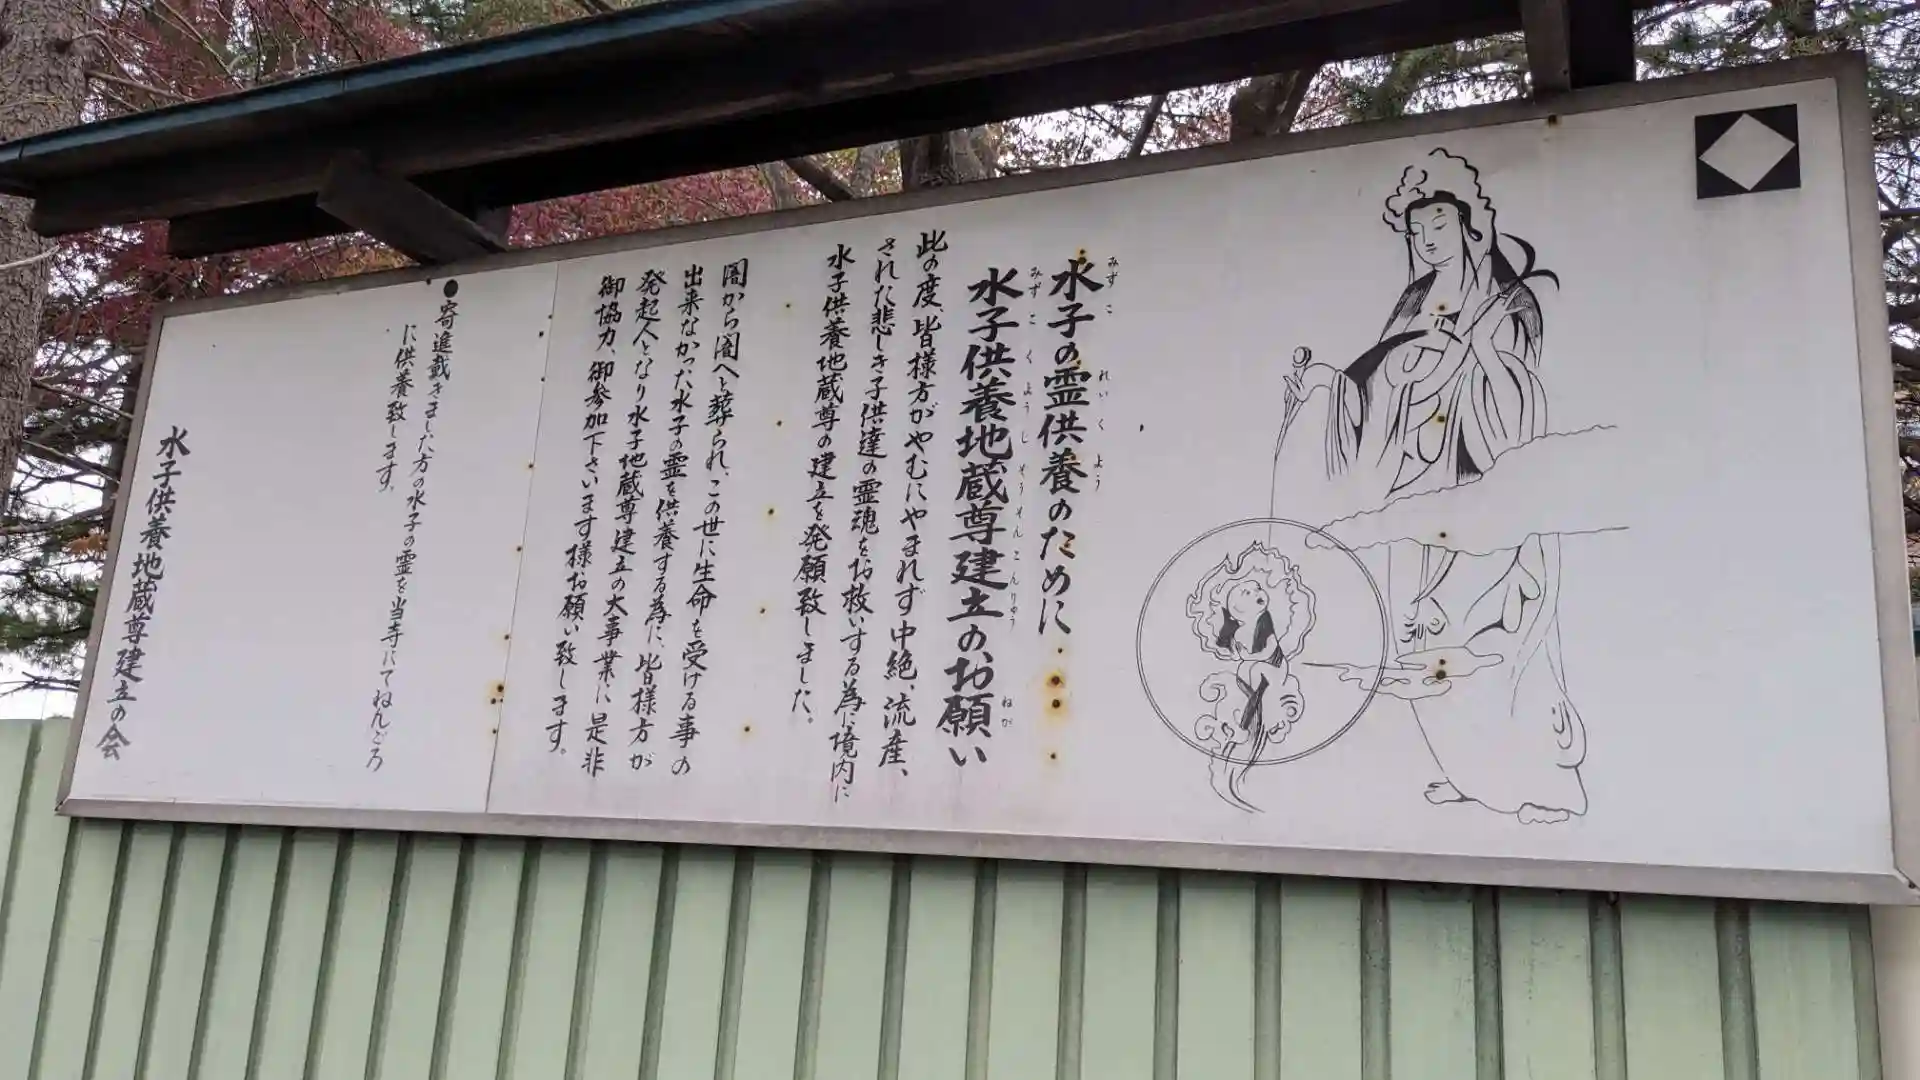 水子の霊供養のために
水子供養地蔵尊建立の、お願い
みずこ
れいくよう
みずこくようじぞうそんこんりゅう
ねが
此の度、皆様方がやむにやまれず中絶、流産、
された悲しき子供達の霊魂をお救いする為に境内に
水子供養地蔵尊の建立を発願致しました。
闇から闇へと葬られ、この世に生命を受ける事の
出来なかった水子の霊を供養する為に、皆様方が
発起人となり水子地蔵尊建立の大事業に是非
御協力、御参加下さいます様お願い致します。
●寄進戴きました方の水子の霊を当寺にてねんごろ
に供養致します。
水子供養地蔵尊建立の会